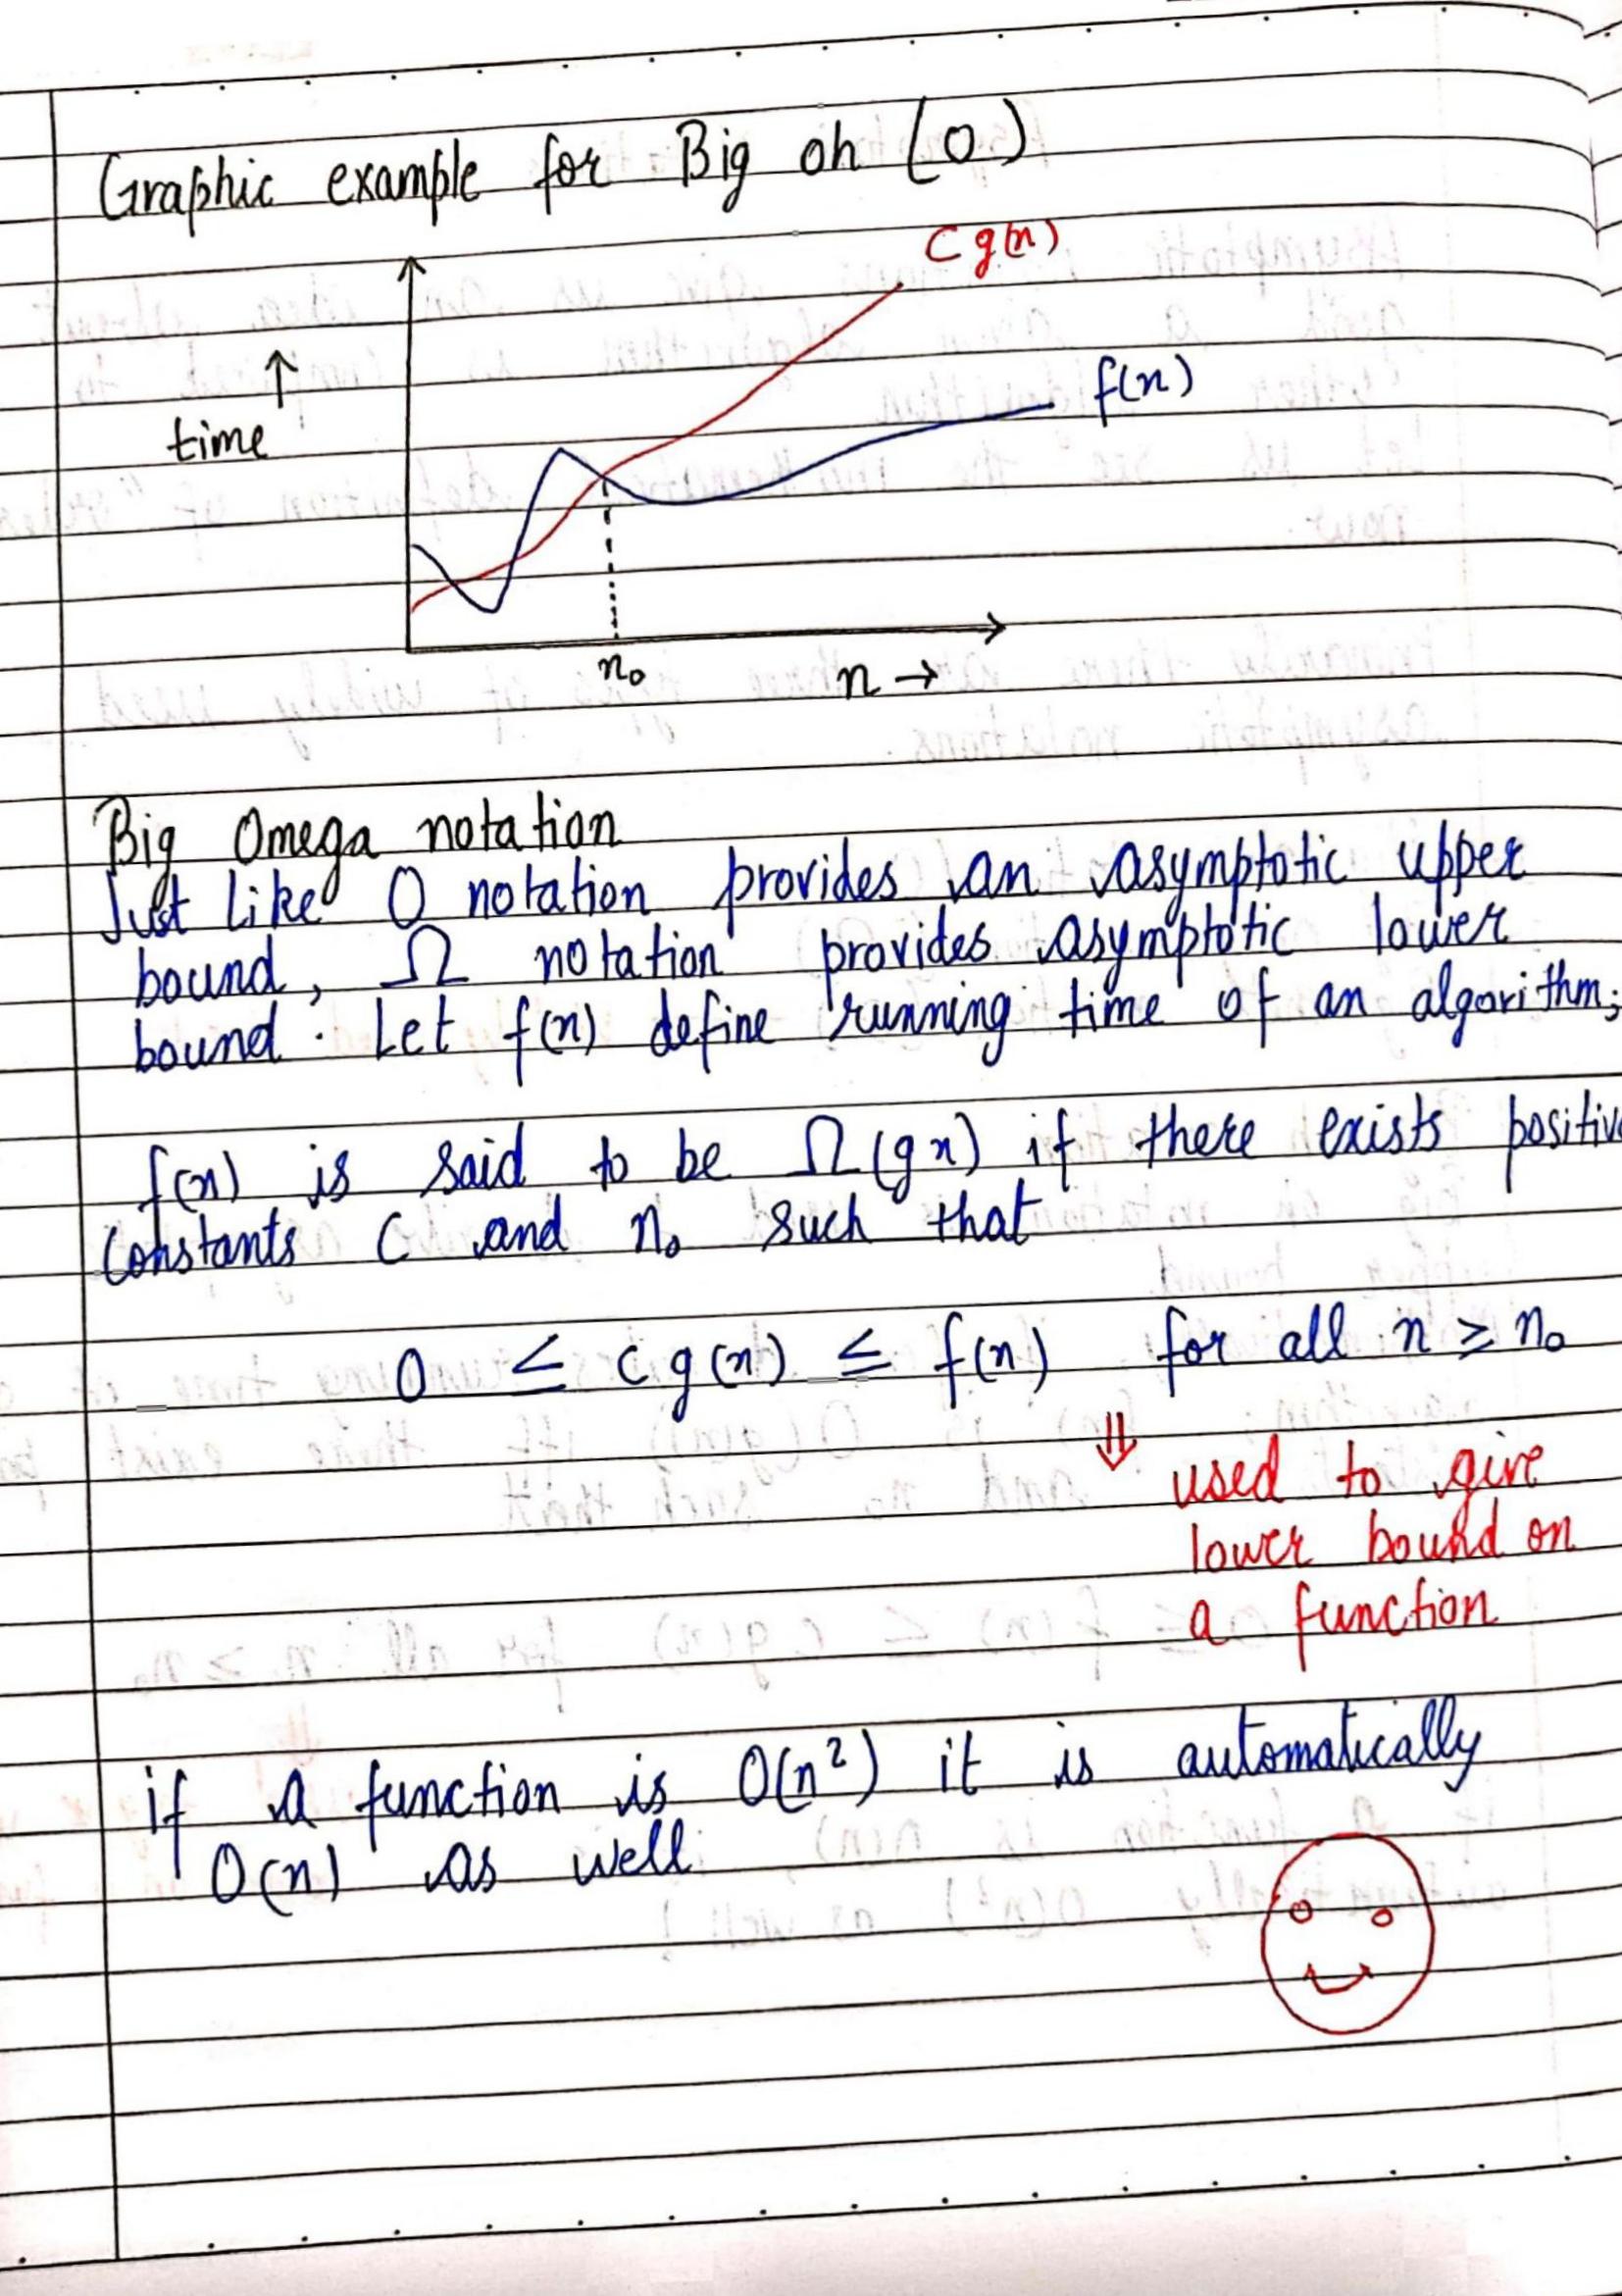 Graphic example for Big oh (O)
C g(n)
f(n)
↑
time
n₀
n →
Big Omega notation
Just like O notation provides an asymptotic upper
bound, Ω notation provides asymptotic lower
bound. Let f(n) define running time of an algorithm;
f(n) is said to be Ω(gn) if there exists positive
Constants C and n₀ such that
0 ≤ c g(n) ≤ f(n) for all n ≥ n₀
⇓ used to give
lower bound on
a function
if a function is O(n²) it is automatically
O(n) as well